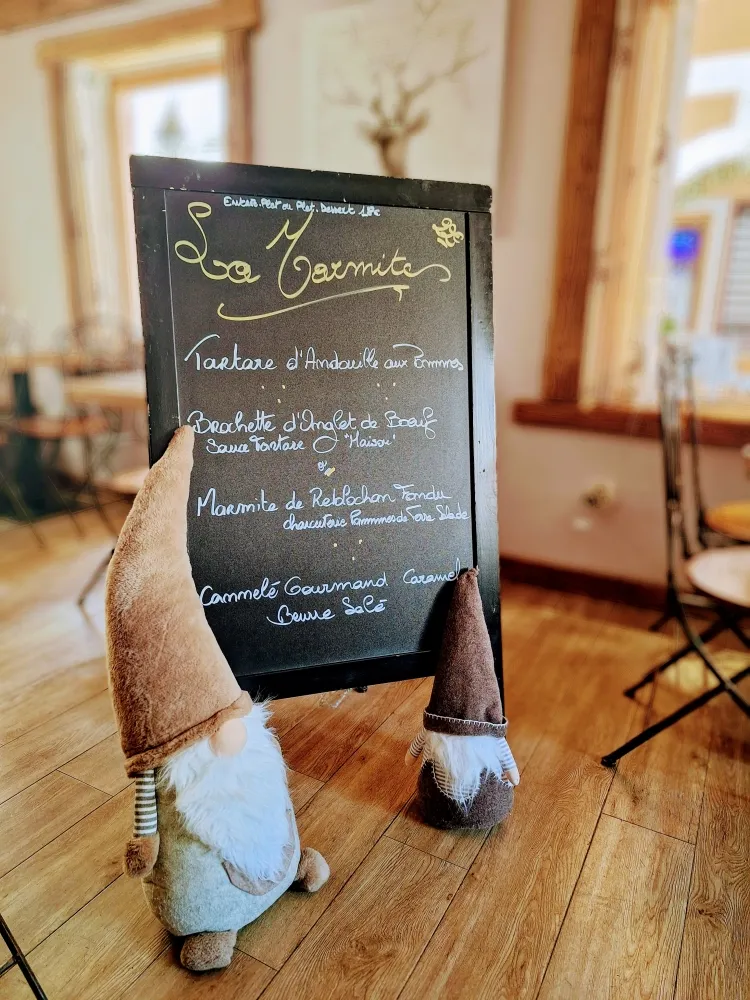 Entrée. Plat ou Plat. Dessert
La Marmite
Tartare d'Andouille aux Pommes
Brochette d'Onglet de Bœuf
Sauce Tartare "Maison"
ou
Marmite de Reblochon Fondu
charcuterie Pommmes de Terre Salade
Cannelé Gourmand Caramel
Beurre Salé